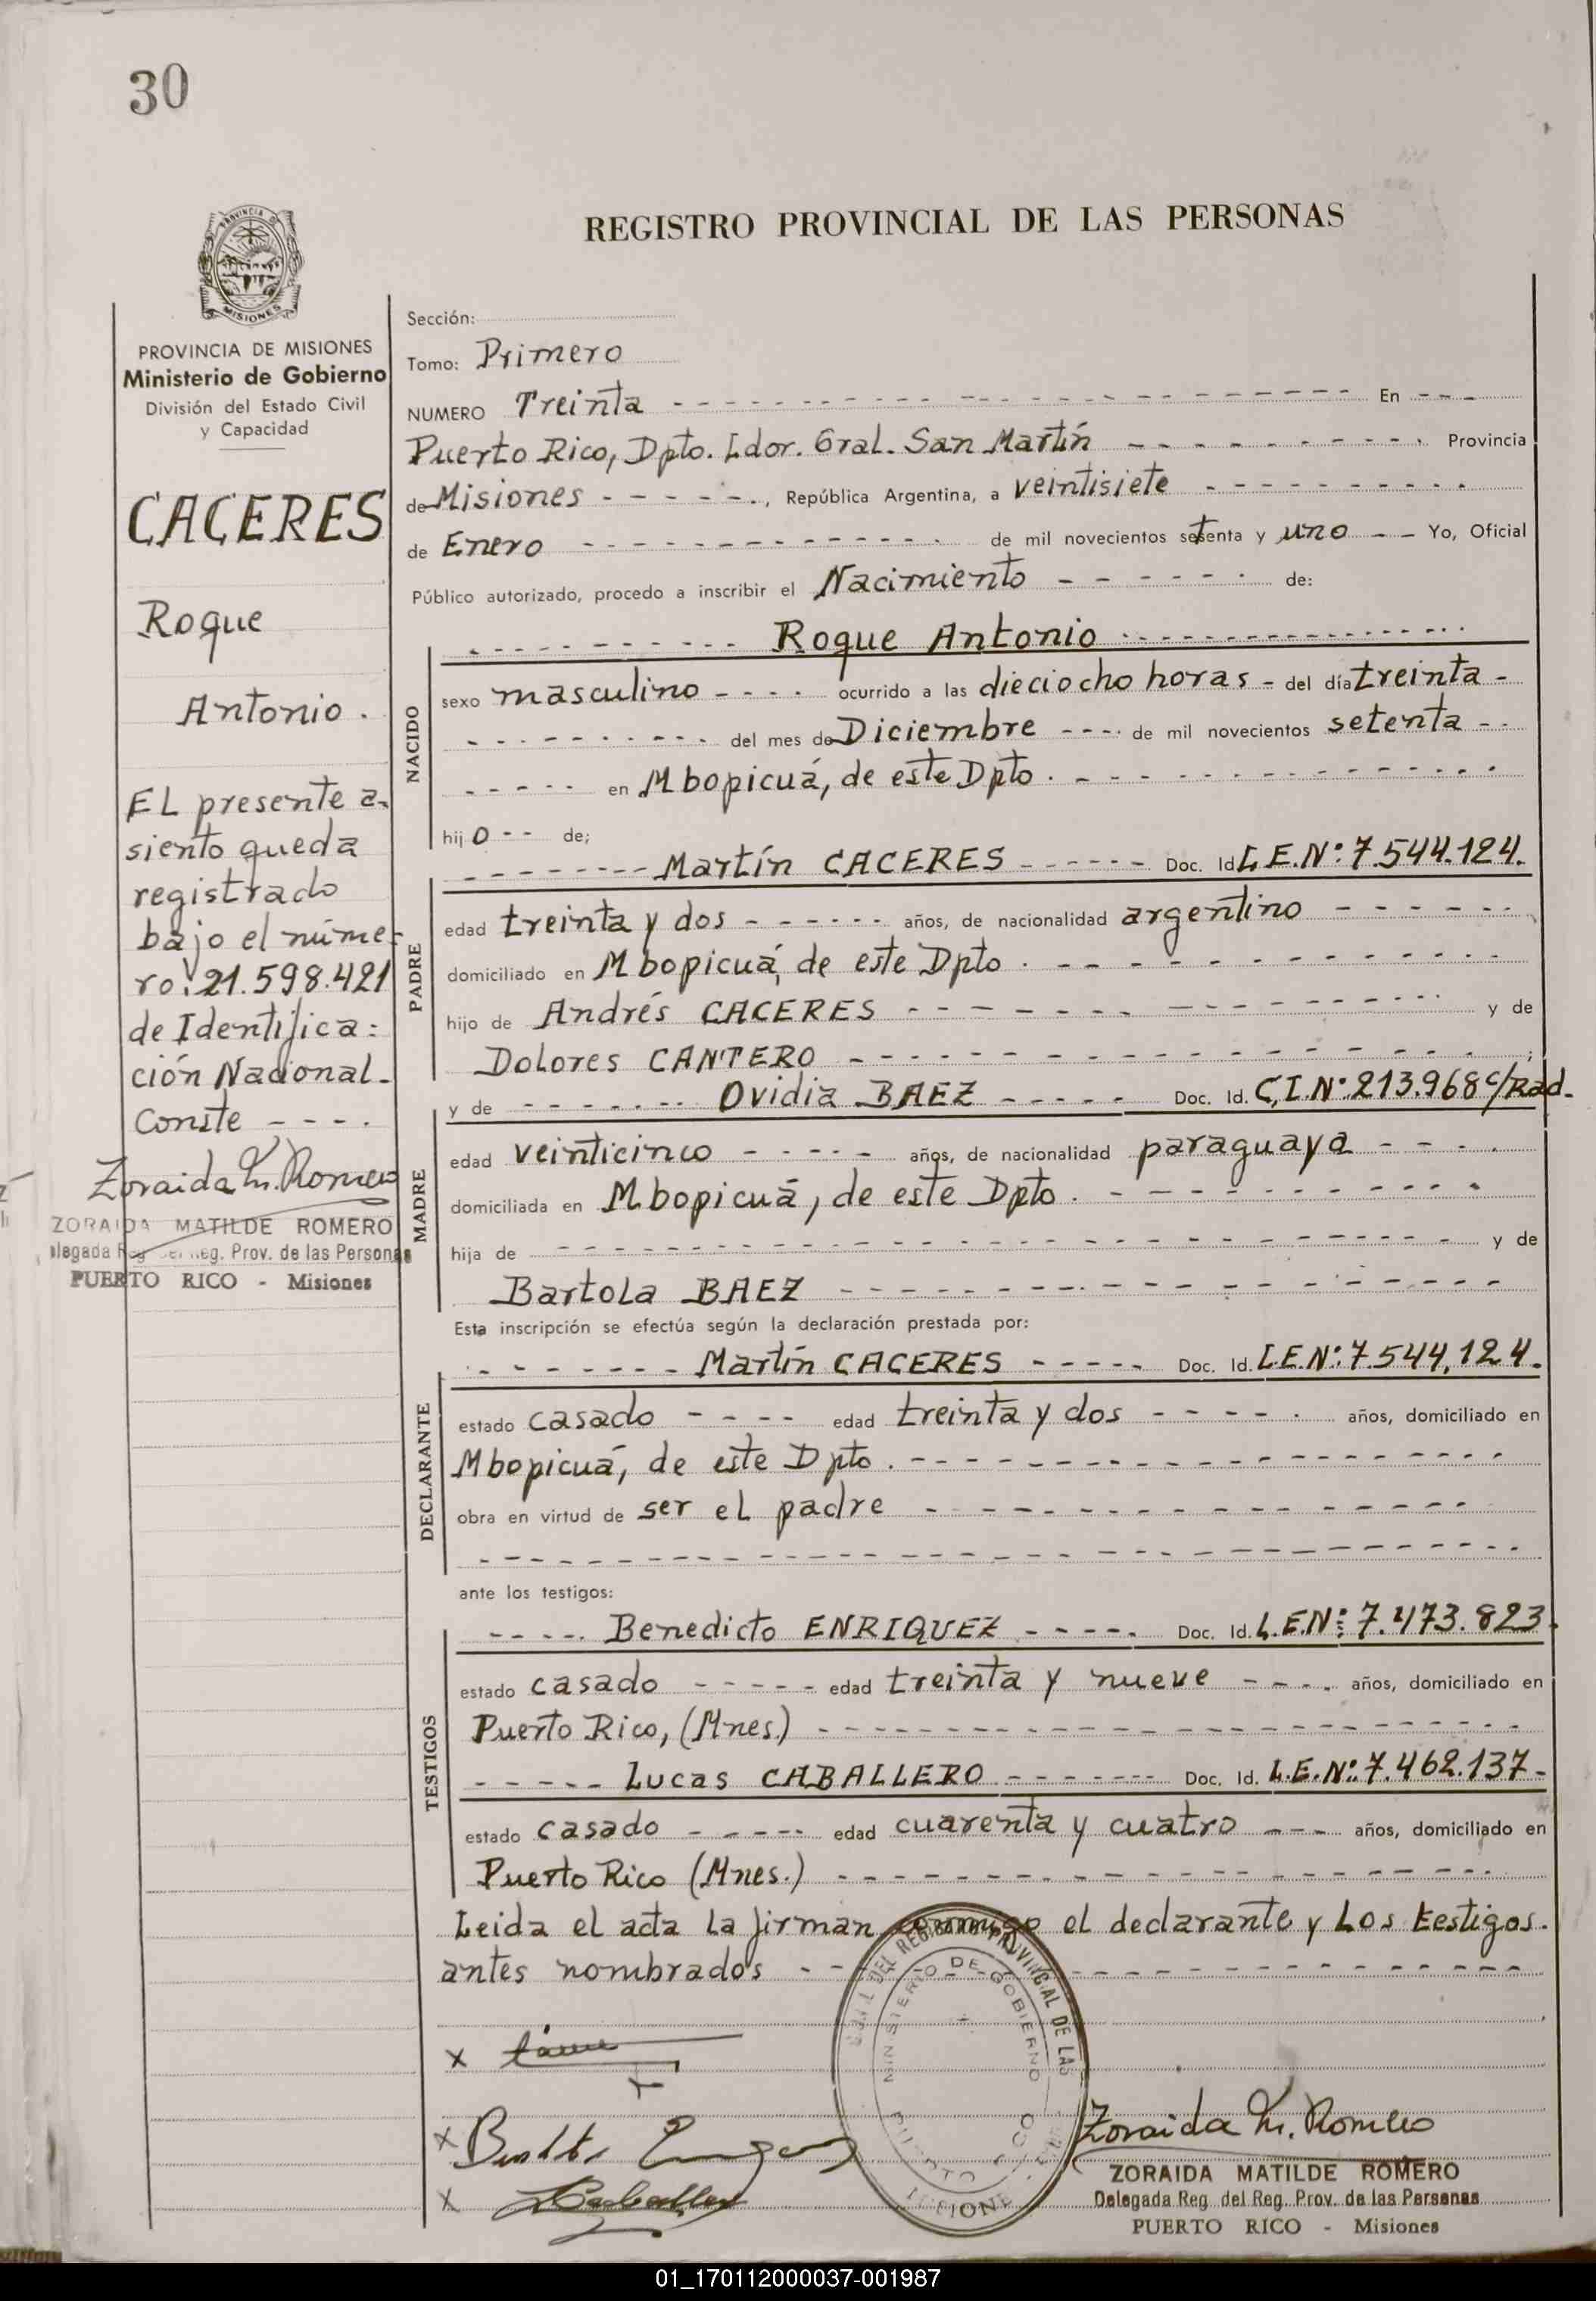 30
REGISTRO PROVINCIAL DE LAS PERSONAS
PROVINCIA DE MISIONES
Ministerio de Gobierno
División del Estado Civil
y Capacidad
CACERES
Roque
Antonio.
EL presente a-
siento queda
registrado
bajo el núme-
ro: 21.598.421
de Identifica=
ción Nacional.
Conste - - - .
Zoraida M. Romero
ZORAIDA MATILDE ROMERO
Delegada Reg. del Reg. Prov. de las Personas
PUERTO RICO - Misiones
Sección:
Tomo: Primero
NUMERO Treinta - - - En - - -
Puerto Rico, Dpto. Ldor. Gral. San Martín - - - Provincia
de Misiones - - - , República Argentina, a veintisiete - - -
de Enero - - - de mil novecientos setenta y uno - - Yo, Oficial
Público autorizado, procedo a inscribir el Nacimiento - - - de:
NACIDO
- - - Roque Antonio - - -
sexo masculino - - - ocurrido a las dieciocho horas - del día treinta -
- - - del mes de Diciembre - - - de mil novecientos setenta - -
- - - en Mbopicuá, de este Dpto. - - -
hijo - - de;
PADRE
- - - Martín CACERES - - - Doc. Id. L.E.Nº: 7.544.124.
edad treinta y dos - - - años, de nacionalidad argentino - - -
domiciliado en Mbopicuá, de este Dpto. - - -
hijo de Andrés CACERES - - - y de
Dolores CANTERO - - - ;
MADRE
y de - - - Ovidia BAEZ - - - Doc. Id. C.I.Nº: 213.968 c/Rad.
edad veinticinco - - - años, de nacionalidad paraguaya - - -
domiciliada en Mbopicuá, de este Dpto. - - -
hija de - - - y de
Bartola BAEZ - - -
Esta inscripción se efectúa según la declaración prestada por:
DECLARANTE
- - - Martín CACERES - - - Doc. Id. L.E.Nº: 7.544,124.
estado casado - - - edad treinta y dos - - - años, domiciliado en
Mbopicuá, de este Dpto. - - -
obra en virtud de ser el padre - - -
- - -
ante los testigos:
TESTIGOS
- - - Benedicto ENRIQUEZ - - - Doc. Id. L.E.Nº: 7.473.823.
estado casado - - - edad treinta y nueve - - - años, domiciliado en
Puerto Rico, (Mnes.) - - -
- - - Lucas CABALLERO - - - Doc. Id. L.E.Nº: 7.462.137-
estado casado - - - edad cuarenta y cuatro - - - años, domiciliado en
Puerto Rico (Mnes.) - - -
Leida el acta la firman conmigo el declarante y Los testigos.
antes nombrados - - -
DEL REGISTRO PROVINCIAL DE LAS
MINISTERIO DE GOBIERNO
Zoraida M. Romero
ZORAIDA MATILDE ROMERO
Delegada Reg. del Reg. Prov. de las Personas
PUERTO RICO - Misiones
01_170112000037-001987